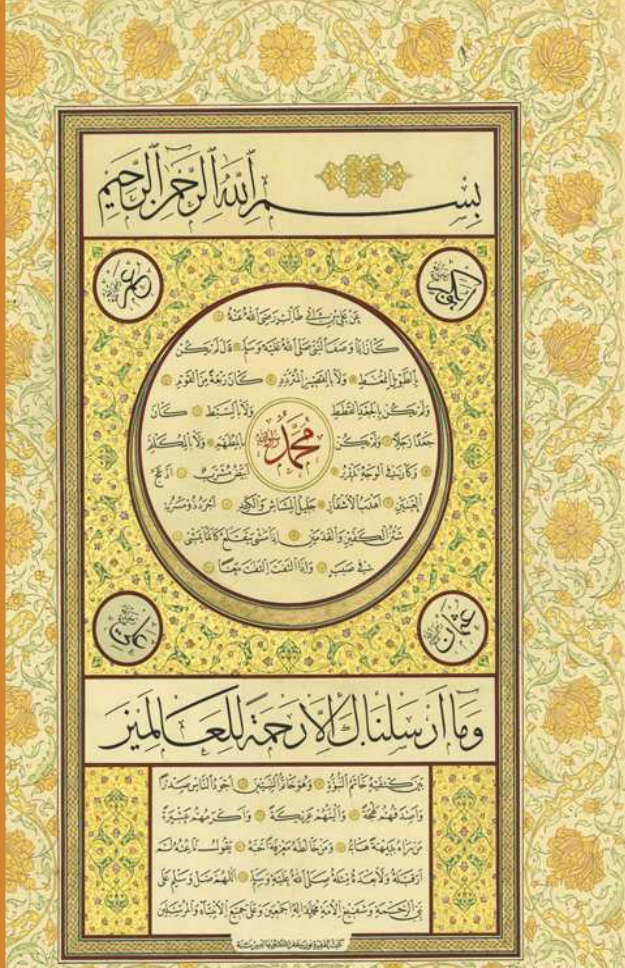 بِسْمِ اللَّهِ الرَّحْمٰنِ الرَّحِيمِ
أبو بكر
عمر
عن علي بن أبي طالب رضي الله عنه
كان إذا وصف النبي صلى الله عليه وسلم قال لم يكن
بالطويل الممغط ولا بالقصير المتردد كان ربعة من القوم
ولم يكن بالجعد القطط ولا بالسبط كان
جعدا رجلا ولم يكن بالمطهم ولا بالمكلثم
محمد
وكان في الوجه تدوير أبيض مشرب أدعج
العينين أهدب الأشفار جليل المشاش والكتد أجرد ذو مسربة
شثن الكفين والقدمين إذا مشى يتقلع كأنما يمشي
في صبب وإذا التفت التفت معا
عثمان
علي
وما أرسلناك إلا رحمة للعالمين
بين كتفيه خاتم النبوة وهو خاتم النبيين أجود الناس صدرا
وأصدقهم لهجة وألينهم عريكة وأكرمهم عشيرة
من رآه بديهة هابه ومن خالطه معرفة أحبه يقول ناعته لم
أر قبله ولا بعده مثله صلى الله عليه وسلم اللهم صل وسلم على
نبي الرحمة وشفيع الأمة محمد وآله أجمعين وعلى جميع الأنبياء والمرسلين